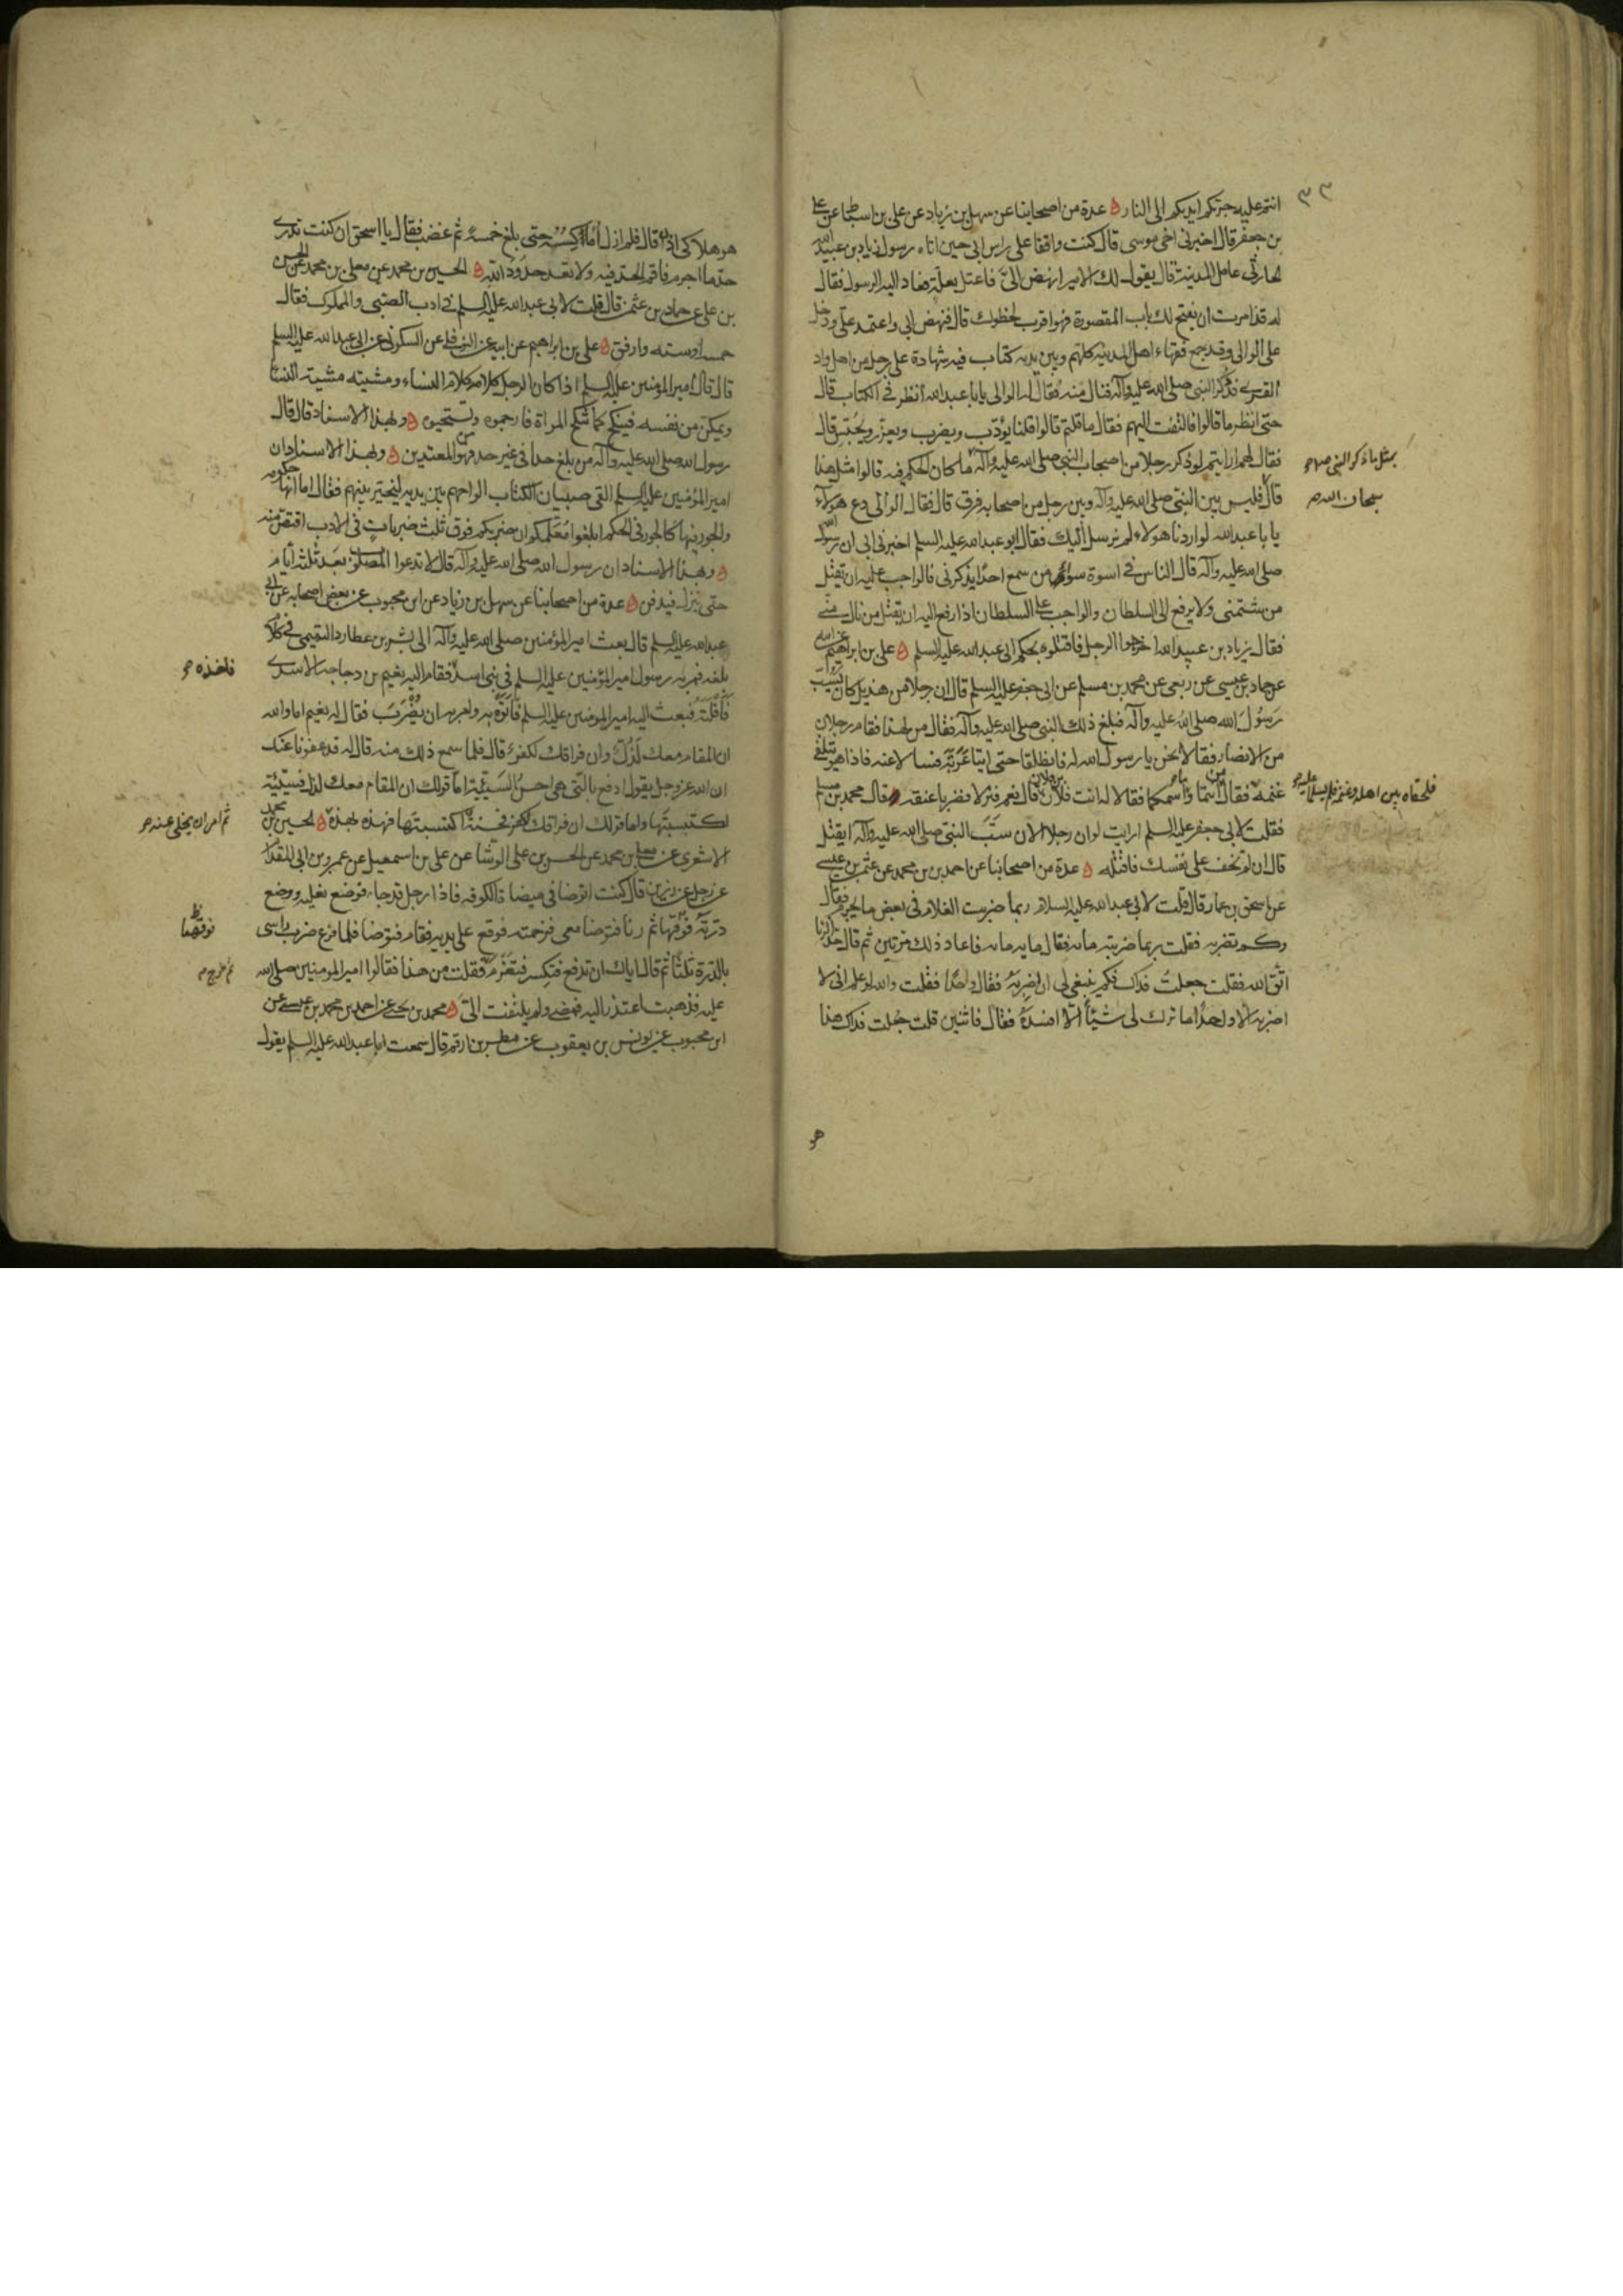 ٣٣
انتم عليه جرتكم ايديكم الى النار ه عدة من اصحابنا عن سهل بن زياد عن على بن اسباط عن على
بن جعفر قال اخبرنى اخى موسى قال كنت واقفا على راس ابى حين اتاه رسول زياد بن عبيد الله
الحارثى عامل المدينة قال يقول لك الامير انهض الىّ فاعتل بعلة فعاد اليه الرسول فقال
له قد امرت ان يفتح لك باب المقصورة فهو اقرب لخطوك قال فنهض ابى واعتمد على ودخل
على الوالى وقد جمع فقهاء اهل المدينة كلهم وبين يديه كتاب فيه شهادة على رجل من اهل واد
القرى فذكر النبى صلى الله عليه وآله فنال منه فقال له الوالى يا با عبد الله انظر فى الكتاب قال
حتى انظر ما قالوا فالتفت اليهم فقال ما قلتم قالوا قلنا يؤدّب ويضرب ويعزّر ويحبس قال
فقال لهم ارايتم لو ذكر رجلا من اصحاب النبى صلى الله عليه وآله ما كان الحكم فيه قالوا مثل هذا
بمثل ما ذكر النبى ص
قال فليس بين النبى صلى الله عليه وآله وبين رجل من اصحابه فرق قال فقال الوالى دع هؤلاء
سبحان الله
يا با عبد الله لو اردنا هؤلاء لم نرسل اليك فقال ابو عبد الله عليه السلم اخبرنى ابى ان رسول الله
صلى الله عليه وآله قال الناس فى اسوة سواء من سمع احدا يذكرنى فالواجب عليه ان يقتل
من شتمنى ولا يرفع الى السلطان والواجب على السلطان اذا رفع اليه ان يقتل من نال منى
فقال زياد بن عبيد الله اخرجوا الرجل فاقتلوه بحكم ابى عبد الله عليه السلم ه على بن ابراهيم عن ابيه
عن حماد بن عيسى عن ربعى عن محمد بن مسلم عن ابى جعفر عليه السلم قال ان رجلا من هذيل كان يسب
رسول الله صلى الله عليه وآله فبلغ ذلك النبى صلى الله عليه وآله فقال من لهذا فقام رجلان
من الانصار فقالا نحن يا رسول الله له فانطلقا حتى اتيا عربة فسالا عنه فاذا هو يتلقى
غنمه فقال من انتما وما اسمكما فقالا له انت فلان بن فلان قال نعم فنزلا فضربا عنقه قال محمد بن مسلم
فلحقاه بين اهله وغنمه فلم يسلما عليه
فقلت لابى جعفر عليه السلم ارايت لو ان رجلا الان سبّ النبى صلى الله عليه وآله ايقتل
قال ان لم تخف على نفسك فاقتله ه عدة من اصحابنا عن احمد بن محمد عن عثمن بن عيسى
عن اسحق بن عمار قال قلت لابى عبد الله عليه السلام ربما ضربت الغلام فى بعض ما يجرم فقال
وكم تضربه فقلت ربما ضربته مائه فقال مايه مايه فاعاد ذلك مرتين ثم قال حد الزنا
اتّق الله فقلت جعلت فداك فكم ينبغى لى ان اضربه فقال واحدًا فقلت والله لو علم انى لا
اضربه الا واحدًا ما ترك لى شيئًا الا افسده فقال فاثنين قلت جعلت فداك هذا
هو
هو هلاكى اذن قال فلم ازل اماكسه حتى بلغ خمسة ثم غضب فقال يا اسحق ان كنت تدرى
حدّ ما اجرم فاقم الحد فيه ولا تعد حدود الله ه الحسين بن محمد عن معلى بن محمد عن الحسن
بن على عن حماد بن عثمن قال قلت لابى عبد الله عليه السلم فى ادب الصبى والمملوك فقال
خمسه او سته وارفق ه على بن ابراهيم عن ابيه عن النوفلى عن السكونى عن ابى عبد الله عليه السلم
قال قال امير المؤمنين عليه السلم اذا كان الرجل كلامه كلام النساء ومشيته مشية النسا
ويمكن من نفسه فينكح كما تنكح المراة فارجموه ولا تستحيوه ه وبهذا الاسناد قال قال
رسول الله صلى الله عليه وآله من بلغ حدا فى غير حد فهو من المعتدين ه وبهذا الاسناد ان
امير المؤمنين عليه السلم القى صبيان الكتاب الواحهم بين يديه ليخير بينهم فقال اما انها حكومه
والجور فيها كالجور فى الحكم ابلغوا معلمكم ان ضربكم فوق ثلث ضربات فى الادب اقتص منه
ه وبهذا الاسناد ان رسول الله صلى الله عليه وآله قال لا تدعوا المصلوب بعد ثلثة ايام
حتى ينزل فيدفن ه عدة من اصحابنا عن سهل بن زياد عن ابن محبوب عن بعض اصحابه عن ابى
عبد الله عليه السلم قال بعث امير المؤمنين صلى الله عليه وآله الى بشر بن عطارد التميمى فى كلام
بلغه فمر به رسول امير المؤمنين عليه السلم فى بنى اسد فقام اليه نعيم بن دجاجه الاسدى
فاخذه
فافلته فبعث اليه امير المومنين عليه السلم فاتوه به وامر به ان يضرب فقال له نعيم اما والله
ان المقام معك لذلّ وان فراقك لكفر قال فلما سمع ذلك منه قال له قد عفونا عنك
ان الله عز وجل يقول ادفع بالتى هى احسن السيئة اما قولك ان المقام معك لذل فسيئة
اكتسبتها واما قولك ان فراقك لكفر فحسنة اكتسبتها فهذه بهذه ه الحسين بن محمد
ثم امر ان يخلى عنه
الاشعرى عن معلى بن محمد عن الحسن بن على الوشا عن على بن اسمعيل عن عمرو بن ابى المقدام
عن رجل عن رزين قال كنت اتوضا فى ميضاة الكوفه فاذا رجل قد جاء فوضع نعليه ووضع
درته فوقها ثم دنا فتوضا معى فزحمته فوقع على يديه فقام فتوضا فلما فرغ ضرب راسى
فوقهما
بالدرة ثلثا ثم قال اياك ان تدفع فتكسر فتغرم فقلت من هذا فقالوا امير المومنين صلى الله
ثم خرج
عليه فذهبت اعتذر اليه فمضى ولم يلتفت الىّ ه محمد بن يحيى عن احمد بن محمد بن عيسى عن
ابن محبوب عن يونس بن يعقوب عن مطر بن ارقم قال سمعت ابا عبد الله عليه السلم يقول